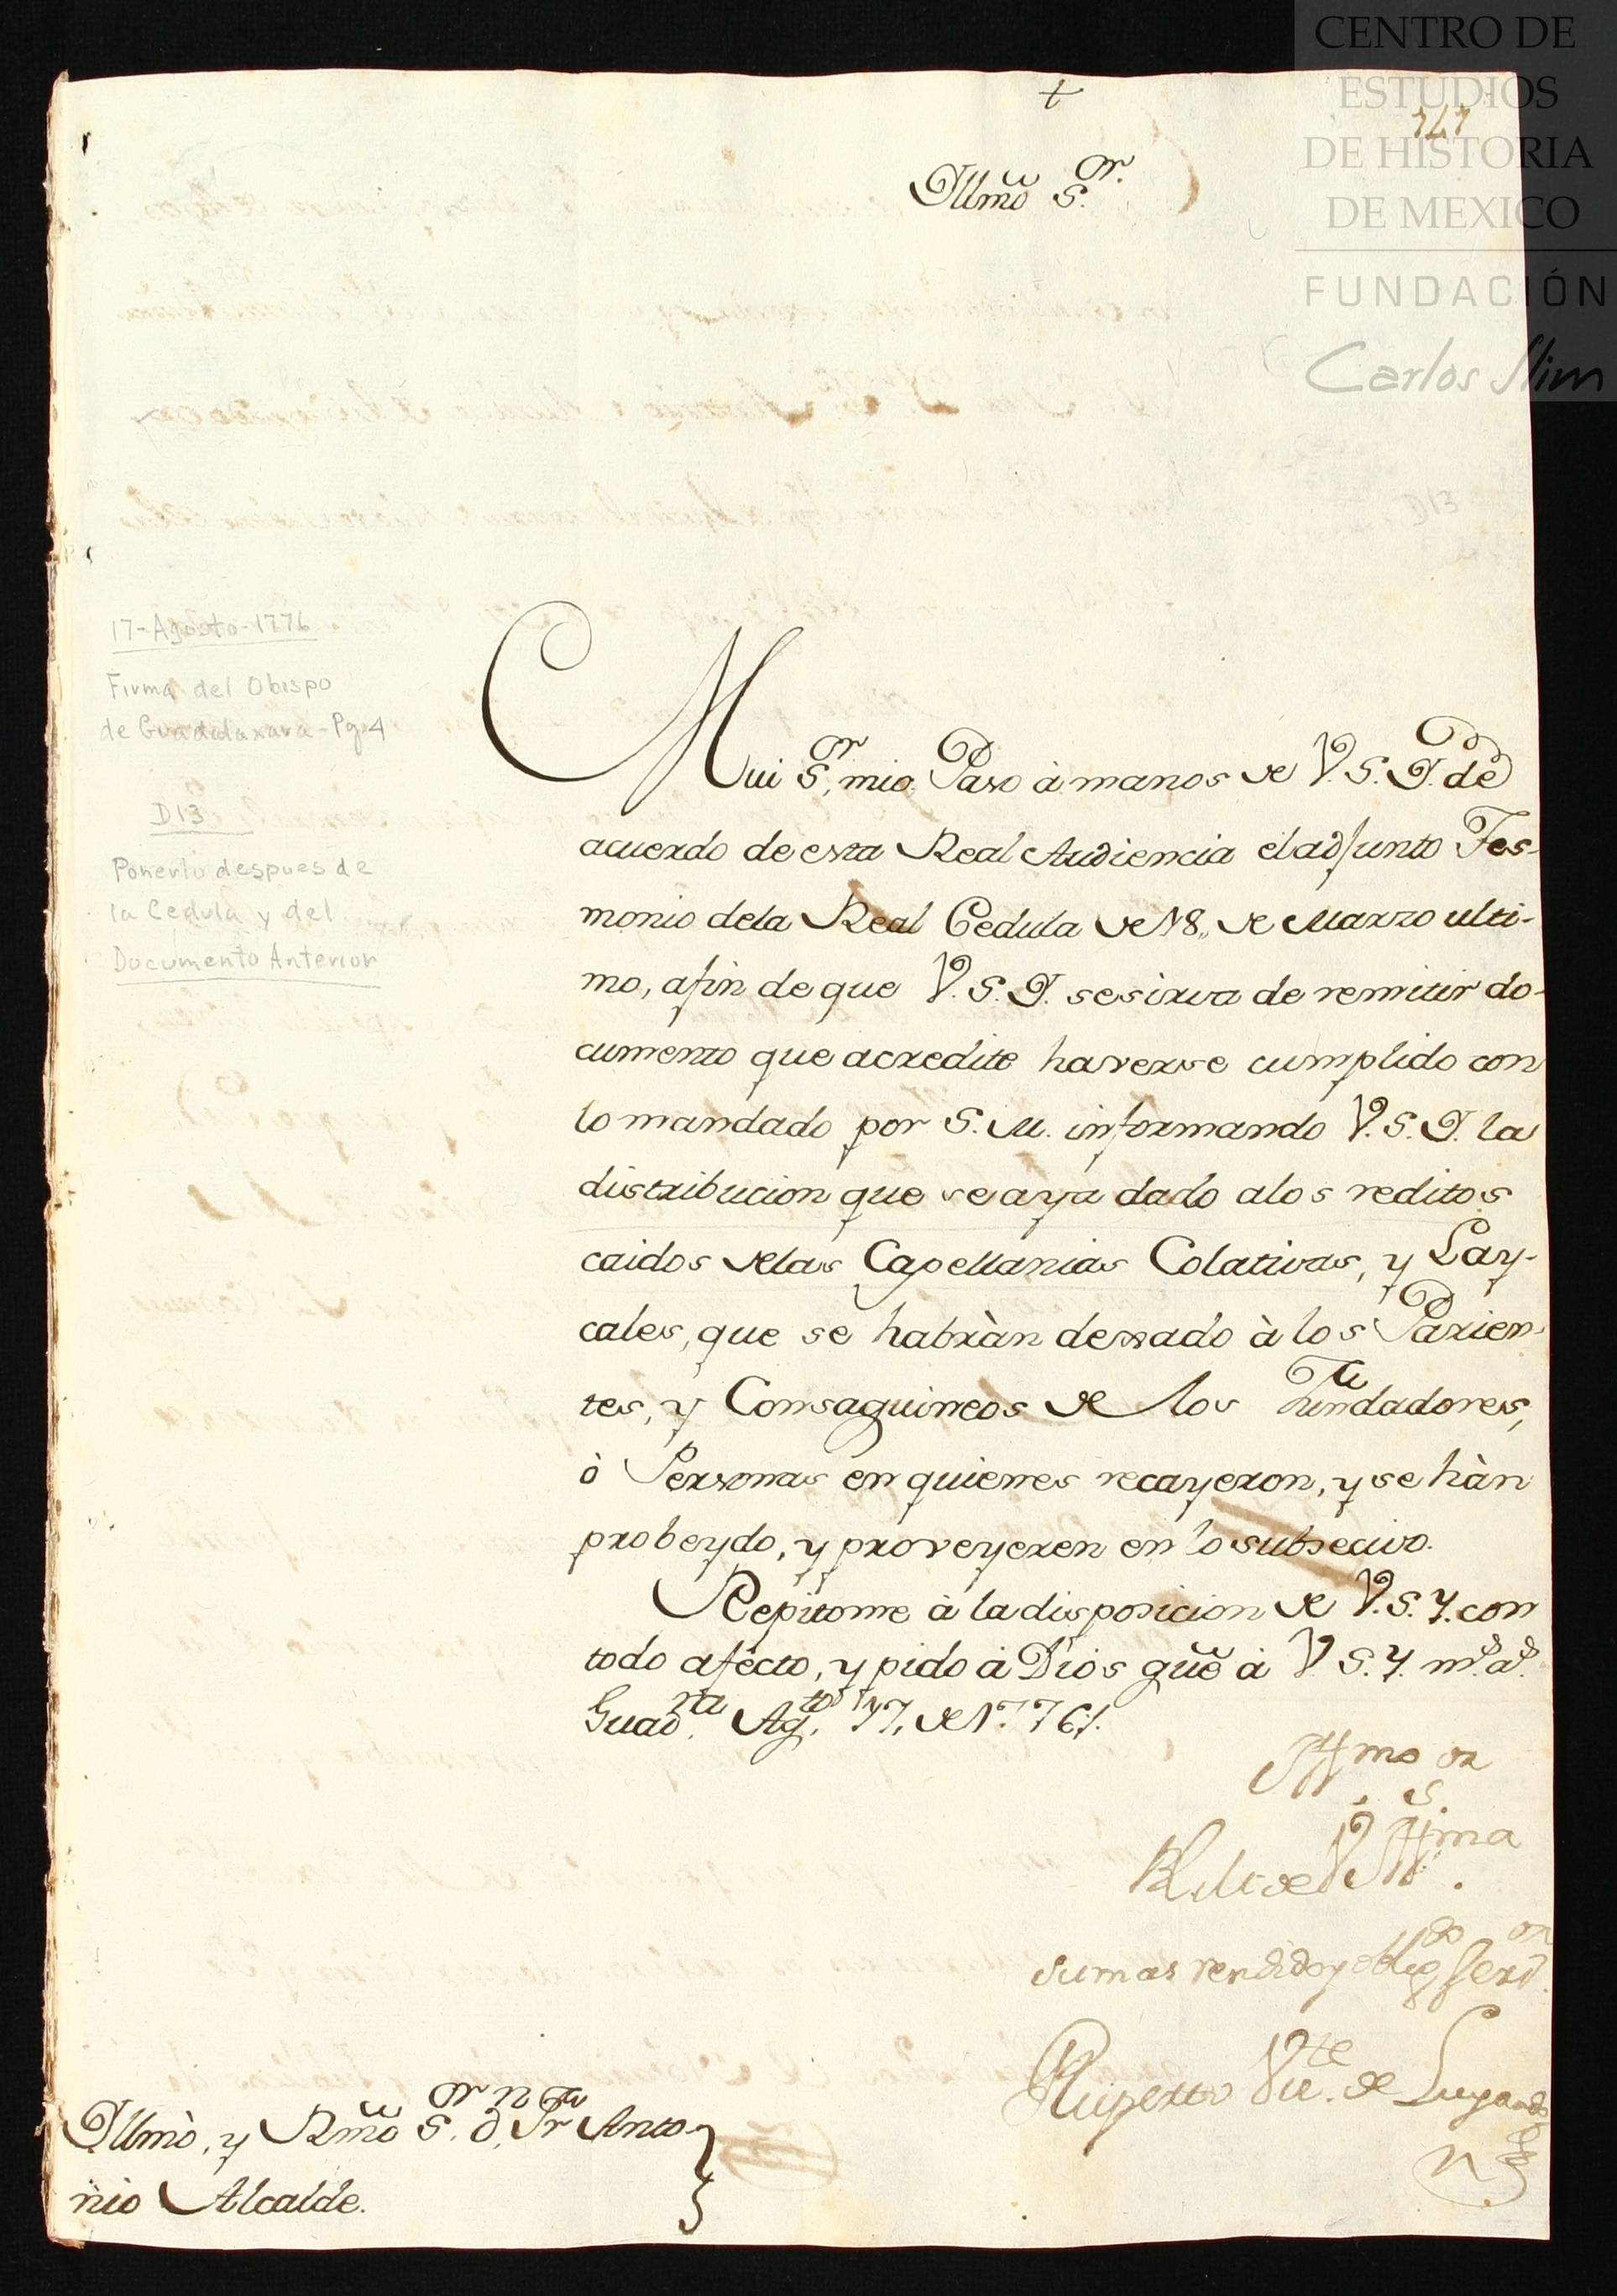 CENTRO DE
ESTUDIOS
DE HISTORIA
DE MEXICO
FUNDACIÓN
Carlos Slim
+
Illmô S.or
D13
17-Agosto-1776
Firma del Obispo
de Guadalaxara-Pg 4
D13
Ponerlo despues de
la Cedula y del
Documento Anterior
Mui S.or mio. Paso à manos de V.S.I. de
acuerdo de esta Real Audiencia el adjunto Tes-
monio dela Real Cedula de 18,, de Marzo ulti-
mo, afin de que V.S.I. sesirva de remitir do-
cumento que acredite haverse cumplido con
lo mandado por S.M. informando V.S.I. la
distribucion que seaya dado alos reditos
caidos delas Capellanias Colativas, y Lay-
cales, que se habràn dexado à los Parien-
tes, y Consaguineos de los Fundadores,
ò Personas en quienes recayeron, y se hàn
probeydo, y proveyeren en lo subsecivo.
Repitome à la disposicion de V.S.Y. con
todo afecto, y pido à Dios güe à V S.Y. m.s a.s
Guad.ra Ag.to 17, de 1776.
Illmo or
S.
BLM de V S Illma.
su mas rendido y oblig.do serv.or
Ruperto Vic.te de Luyando
Illmò, y Rmô S.or D.n Fr Anto-
nio Alcalde.